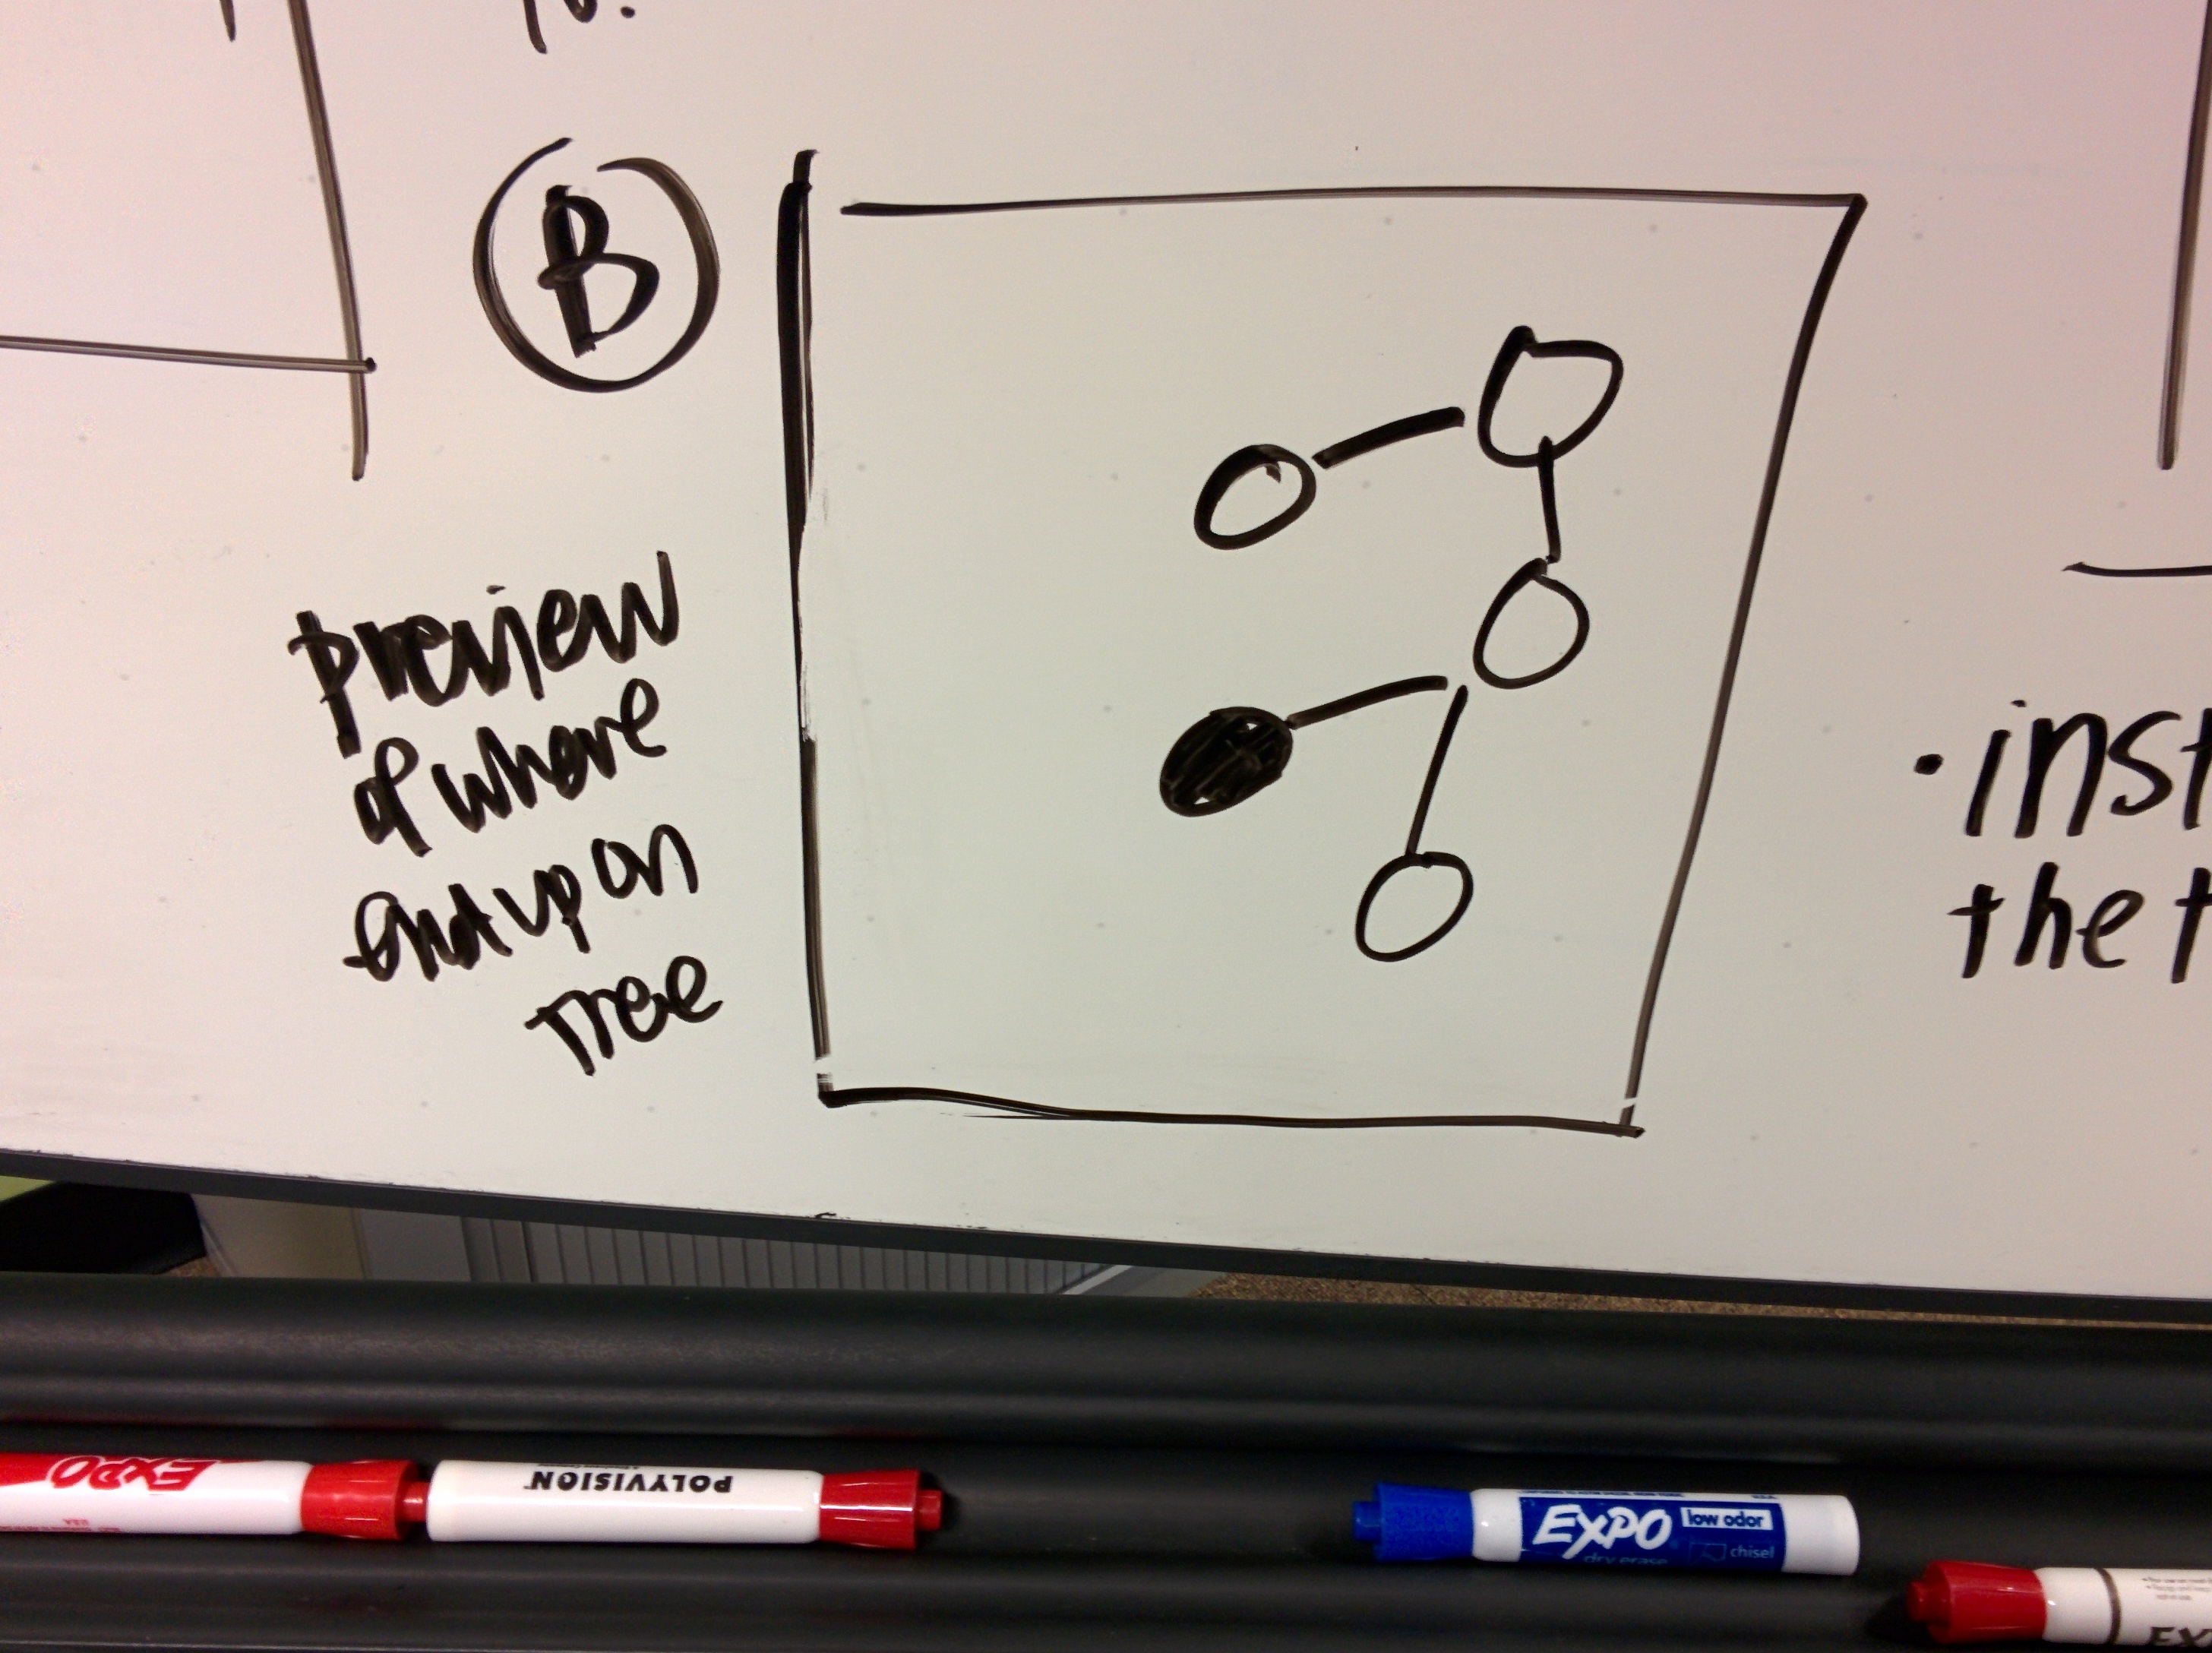 B
preview
of where
end up on
Tree
· inst
the t
EXPO
POLYVISION
EXPO
low odor
dry erase
chisel
EX